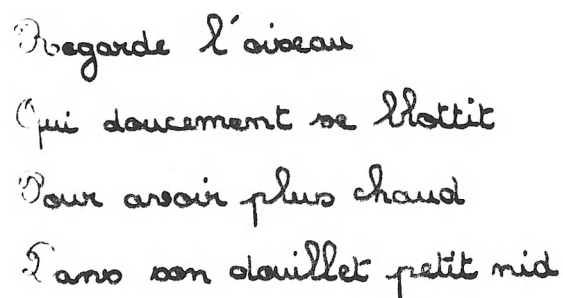 Regarde l'oiseau
Qui doucement se blottit
Pour avoir plus chaud
Dans son douillet petit nid